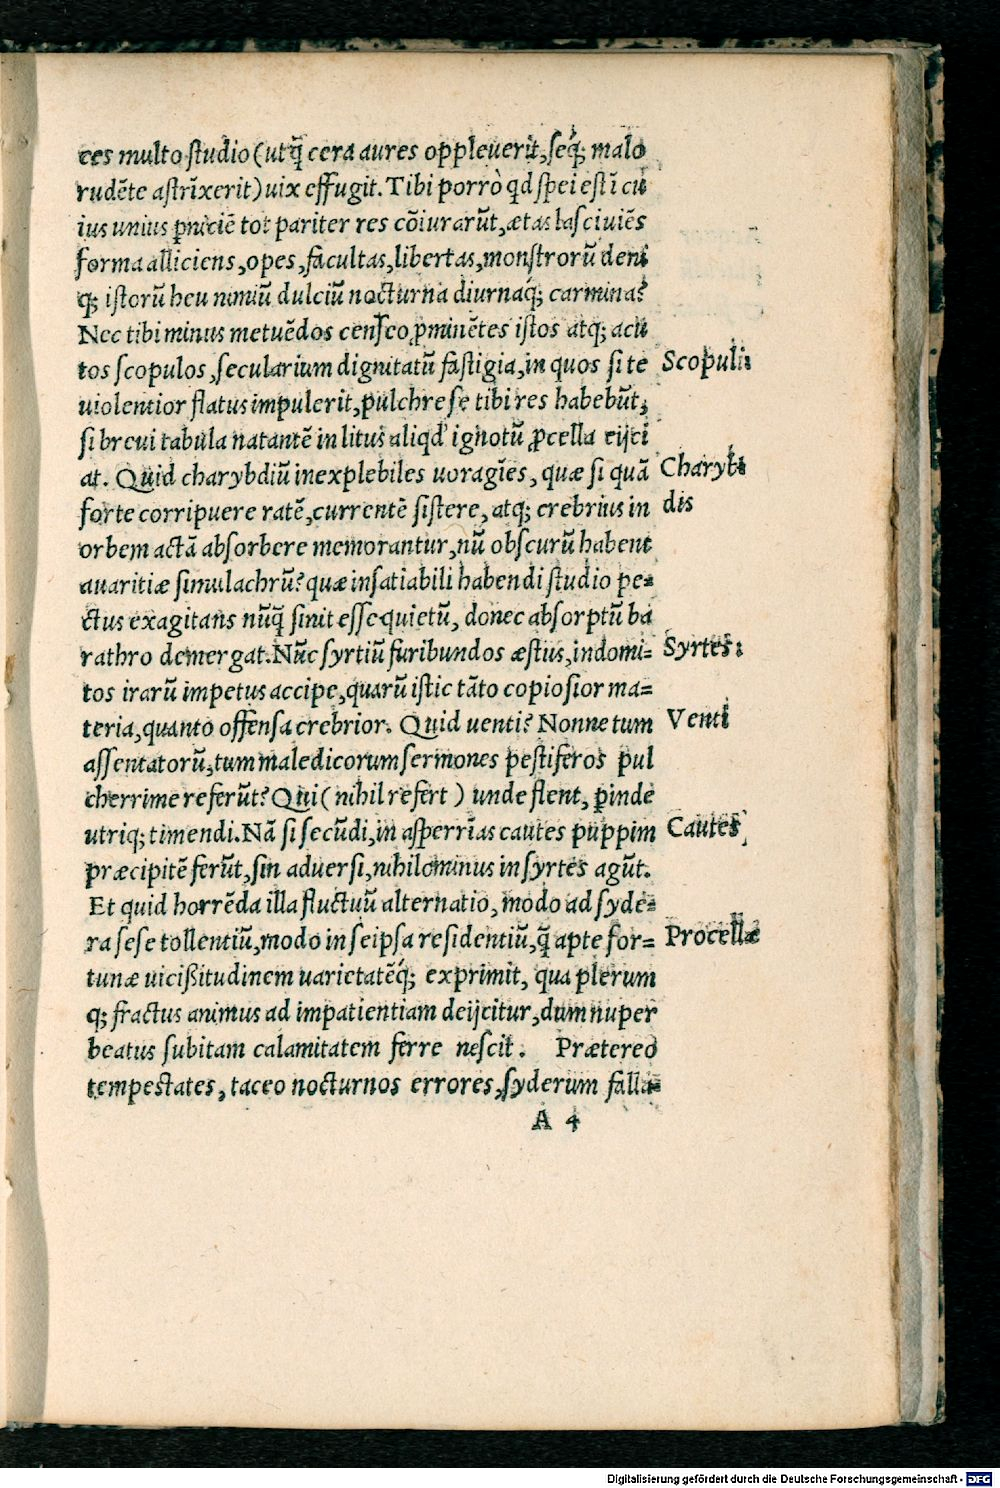 ces multo studio (utq̃ cera aures oppleuerit, seq́; malo
rudẽte astrĩxerit) uix effugit. Tibi porrò qd spei est ĩ cu
ius unius ꝑniciẽ tot pariter res cõiurarũt, ætas lasciuiẽs
forma alliciens, opes, facultas, libertas, monstrorũ deni
q; istorũ heu nimiũ dulciũ nocturna diurnaq́; carmina?
Nec tibi minus metuẽdos censeo ꝓminẽtes istos atq; acu
tos scopulos, secularium dignitatũ fastigia, in quos si te
Scopuli:
uiolentior flatus impulerit, pulchre se tibi res habebũt,
si breui tabula natantẽ in litus aliqd' ignotũ ꝓcella eijci
at. Quid charybdiũ inexplebiles uoragĩes, quæ si quã
Charyb:
forte corripuere ratẽ, currentẽ sistere, atq; crebrius in
dis
orbem actã absorbere memorantur, nũ obscurũ habent
auaritiæ simulachrũ? quæ insatiabili habendi studio pe=
ctus exagitans nũq̃ sinit esse quietũ, donec absorptũ ba
rathro demergat. Nũc syrtiũ furibundos æstus, indomi=
Syrtes:
tos irarũ impetus accipe, quarũ istic tãto copiosior ma=
teria, quanto offensa crebrior. Quid uenti? Nonne tum
Venti
assentatorũ, tum maledicorum sermones pestiferos pul
cherrime referũt? Qui (nihil refert) unde flent, ꝑinde
utriq; timendi. Nã si secũdi, in asperrĩas cautes puppim
Cautes
præcipitẽ ferũt, sin aduersi, nihilominus in syrtes agũt.
Et quid horrẽda illa fluctuũ alternatio, modo ad syde=
ra sese tollentiũ, modo in seipsa residentiũ, q̃ apte for=
Procellæ
tunæ uicißitudinem uarietatẽq́; exprimit, qua plerum
q; fractus animus ad impatientiam deijcitur, dum nuper
beatus subitam calamitatem ferre nescit. Prætereo
tempestates, taceo nocturnos errores, syderum falla=
A 4
Digitalisierung gefördert durch die Deutsche Forschungsgemeinschaft - DFG